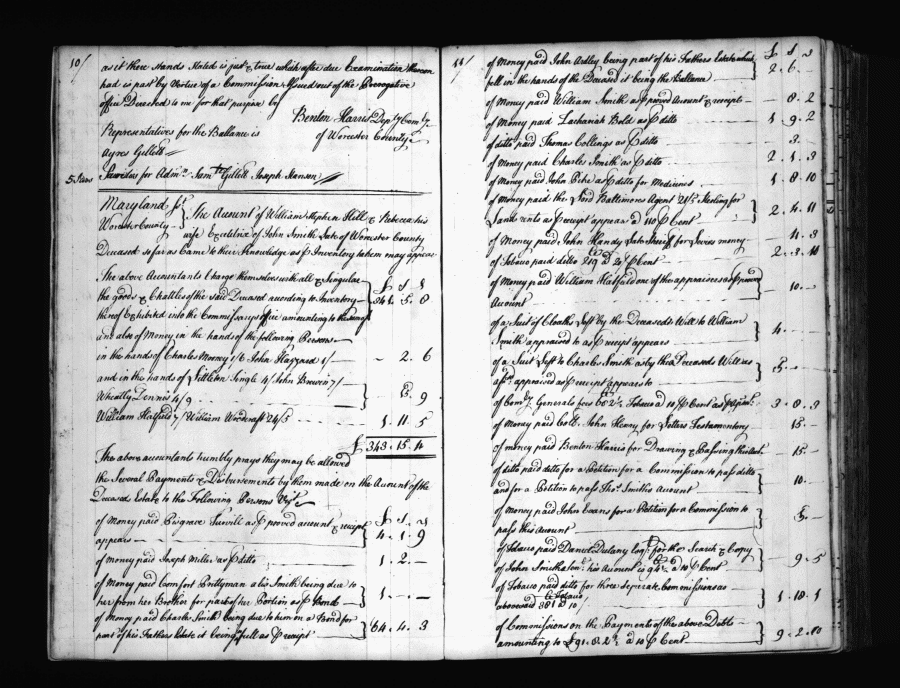 10/
as it there stands Stated is just & true which after due Examination thereon
had is past by Vertue of a Commission Issued out of the Prerogative
office Directed to me for that purpose by
Benton Harris Depy Comy
of Worcester County
Representatives for the Ballance is
Ayres Gillett
Sureties for Admn Saml Gillett Joseph Hanson
Maryland Ss
Worcester County
The Account of William Stephen Hill & Rebecca his
wife Executrix of John Smith Late of Worcester County
Deceased so far as Came to their Knowledge as p Inventory taken may appear
The above Accountants Charge themselves with all & Singular
£ S d
the goods & Chattles of the said Deceased according to Inventory
thereof Exhibited into the Commissarys office amounting to the sum of
341. 5. 8
and also of Money in the hands of the following Persons
in the hands of Charles Money 1/6 John Hazzard 1/ - - 2. 6
and in the hands of Littleton Lingle 4/ John Brevin 7/
Wheatly Dennis 4/9
William Hatfield 7/ William Woodcraft 24/5 - - 1. 11. 5
£ 343. 15. 4
The above accountants humbly prays they may be allowed
the Several Payments & Disbursements by them made on the Account of the
Deceased Estate to the Following Persons Vizt
£ S d
of Money paid as p proved account & receipt
appears - - 4. 1. 9
of money paid Joseph Miller as p ditto - 1. 2. -
of Money paid Comfort Prettyman alias Smith being due to
her from her Brother for part of her Portion as p Bond - 1. -. -
of Money paid Charles Smith being due to him on a Bond for
part of his Fathers Estate it being full as p receipt 64. 4. 3
11/
£ S d
of Money paid John Ardley being part of his Fathers Estate which
fell in the hands of the Deceased it being the Ballance - 2. 6. -
of Money paid William Smith as p proved Account & receipt - - 8. 2
of Money paid Zachariah Bold as p ditto - 1. 9. 2
of ditto paid Thomas Collings as p ditto - - 3. -
of Money paid Charles Smith as p ditto - 2. 1. 3
of Money paid John Pope as p ditto for Medicines - 1. 8. 10
of Money paid the Lord Baltimores Agent 24/5 Sterling for
Land rents as p receipt appears a 110 p Cent - 2. 4. 11
of Money paid John Handy Late Sheriff for Levies money - 4. 3
of Tobacco paid ditto 219 a 20 p Cent - 2. 3. 10
of Money paid William Hatfield one of the appraisers as p proved
Account - 10. -
of a Suit of Cloaths Left by the Deceaseds Will to William
Smith appraised to as p receipt appears 4. - -
of a Suit Left to Charles Smith as by the Deceaseds Will was
appraised as p receipt appears to 5. - -
of Comy Generals fees Tobacco a 10 p Cent 3. 8. 3
of Money paid Colo. John Henry for Letters Testamentory - 15. -
of money paid Benton Harris for Drawing & Passing this Acct - 15. -
of ditto paid ditto for a Petition for a Commission to pass ditto
and for a Petition to pass Thos. Smiths Account - 10. -
of Money paid John Evans for a Petition for a Commission to
pass this Account - 5. -
of Tobacco paid Daniel Dulany Esqr. for the Search & Copy
of John Smiths his Account is 94 a 10 p Cent - 9. 5
of Tobacco paid ditto for three separate Commissions
lb Tobacco
aforesaid 381 a 10/ 1. 18. 1
of Commissions on the Payments of the above Debts
amounting to £91. 8. 2 a 10 p Cent 9. 2. 10